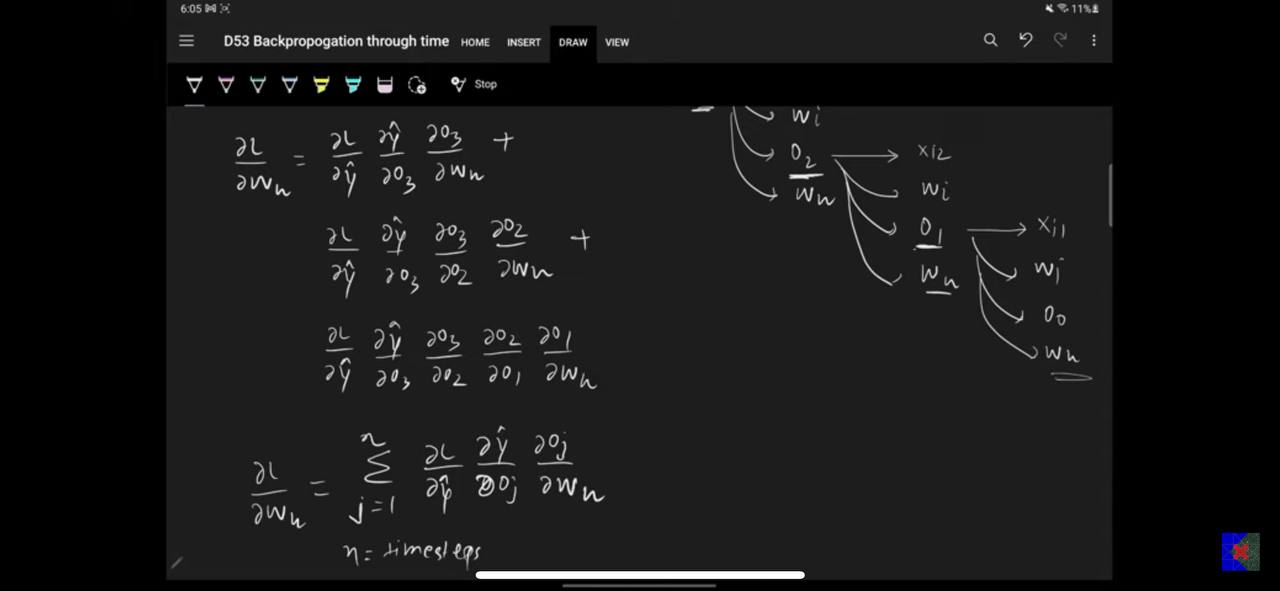 6:05 11%
D53 Backpropogation through time HOME INSERT DRAW VIEW
Stop
∂L/∂Wh = ∂L/∂ŷ ∂ŷ/∂O3 ∂O3/∂Wh +
∂L/∂ŷ ∂ŷ/∂O3 ∂O3/∂O2 ∂O2/∂Wh +
∂L/∂ŷ ∂ŷ/∂O3 ∂O3/∂O2 ∂O2/∂O1 ∂O1/∂Wh
∂L/∂Wh = n Σ j=1 ∂L/∂ŷ ∂ŷ/∂Oj ∂Oj/∂Wh
n = timesteps
Wi
O2 → Xi2
Wh
Wi
O1 → Xi1
Wh
Wi
O0
Wh